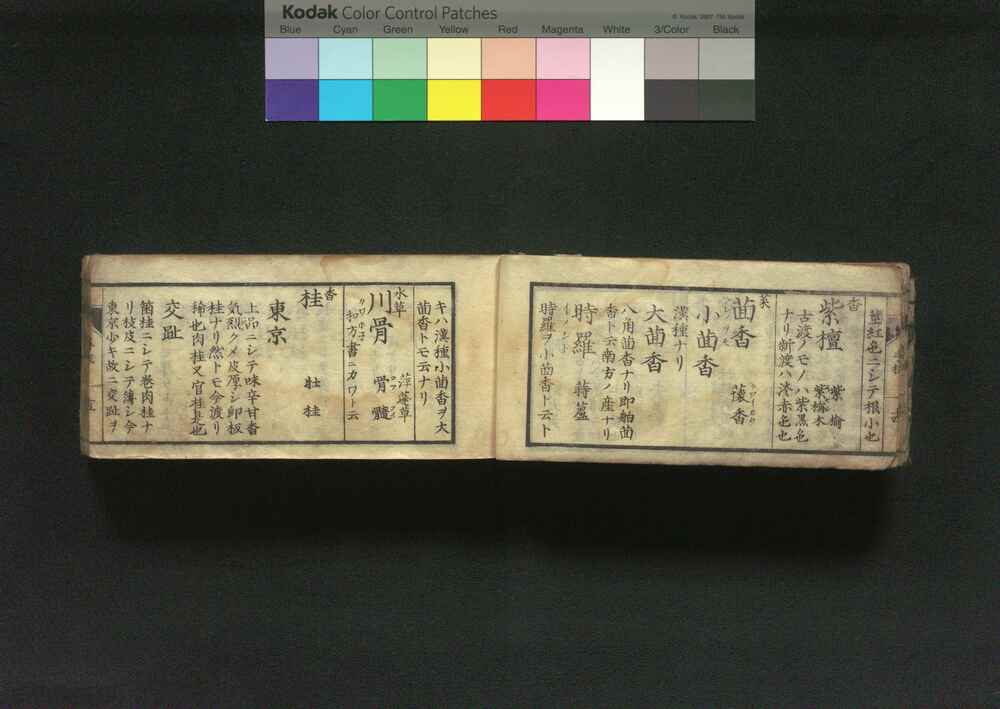 Kodak Color Control Patches
© Kodak, 2007
Blue Cyan Green Yellow Red Magenta White 3/Color Black
葉紅色ニシテ根小也
香
紫檀 紫榆
紫檬木
古渡ノモノハ紫黒色
ナリ新渡ハ淡赤色也
菜
茴香 蘹香
小茴香
漢種ナリ
大茴香
八角茴香ナリ即舶茴
香ト云南方ノ産ナリ
時羅 蒔蘿
イノンド
時羅ヲ小茴香ト云ト
キハ漢種小茴香ヲ大
茴香トモ云ナリ
水草
川骨 萍蓬草
骨髓
和方書ニカワト云
香
桂 牡桂
東京
上品ニシテ味辛甘香
気烈クメ皮厚シ即板
桂ナリ然トモ今渡リ
稀也肉桂又官桂是也
交趾
箇桂ニシテ巻肉桂ナ
リ枝皮ニシテ薄シ今
東京少キ故ニ交趾ヲ